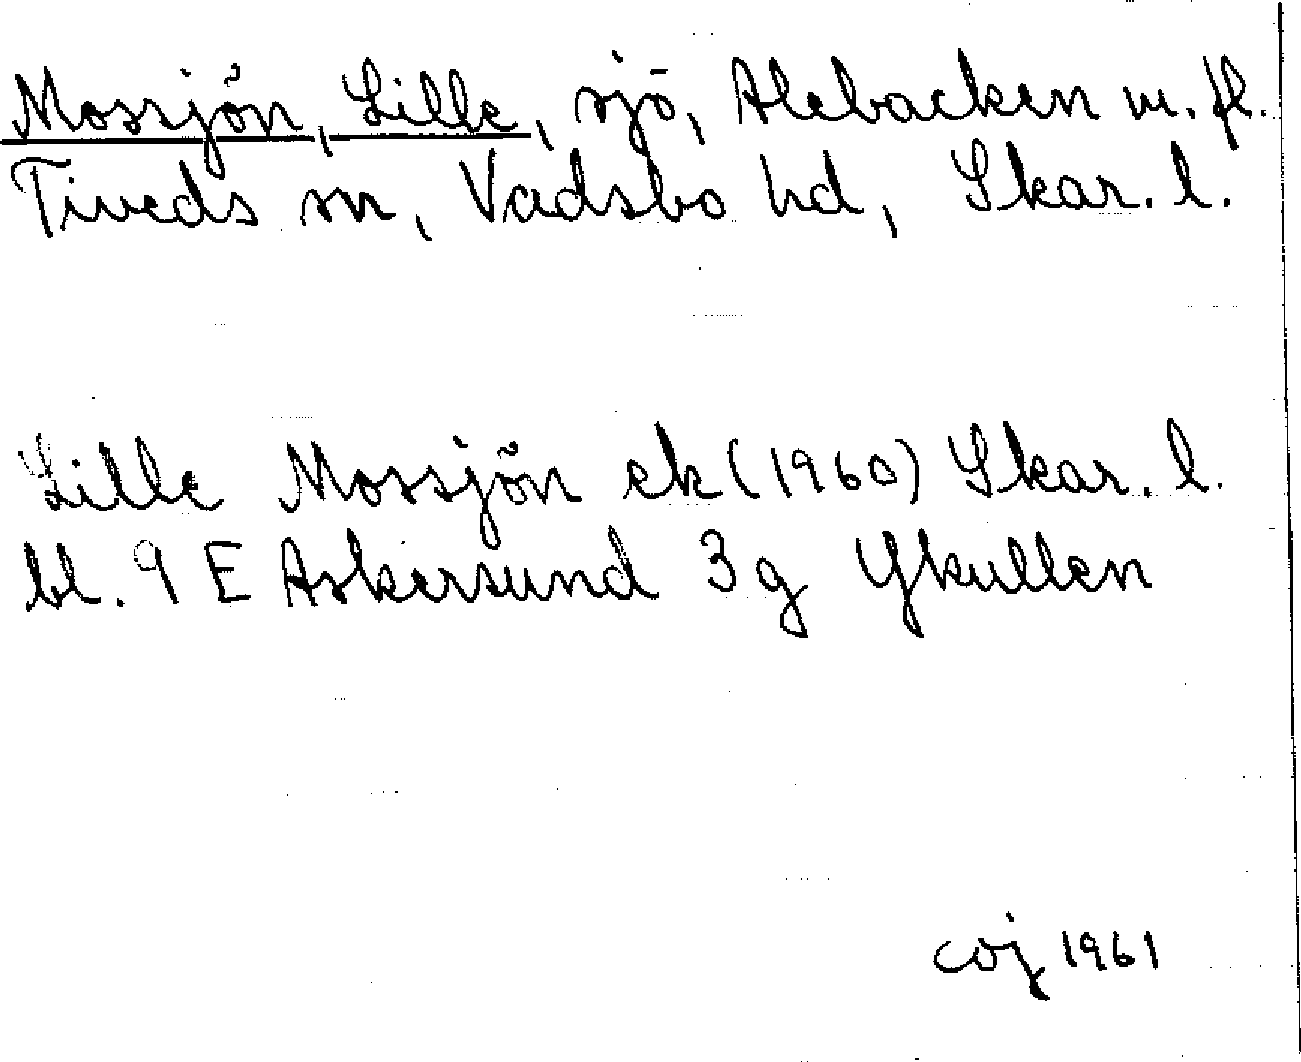 Mossjön, Lille, sjö, Alebacken m. fl.
Tiveds sn, Vadsbo hd, Skar. l.
Lille Mossjön ek (1960) Skar. l.
bl. 9 E Askersund 3 g Ykullen
coj 1961